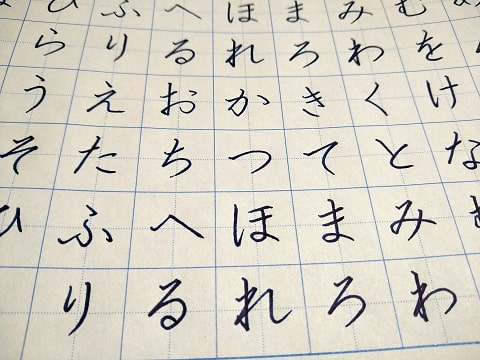 ひふへほまみむ
らりるれろわを
うえおかきくけ
そたちつてとな
ひふへほまみむ
りるれろわ